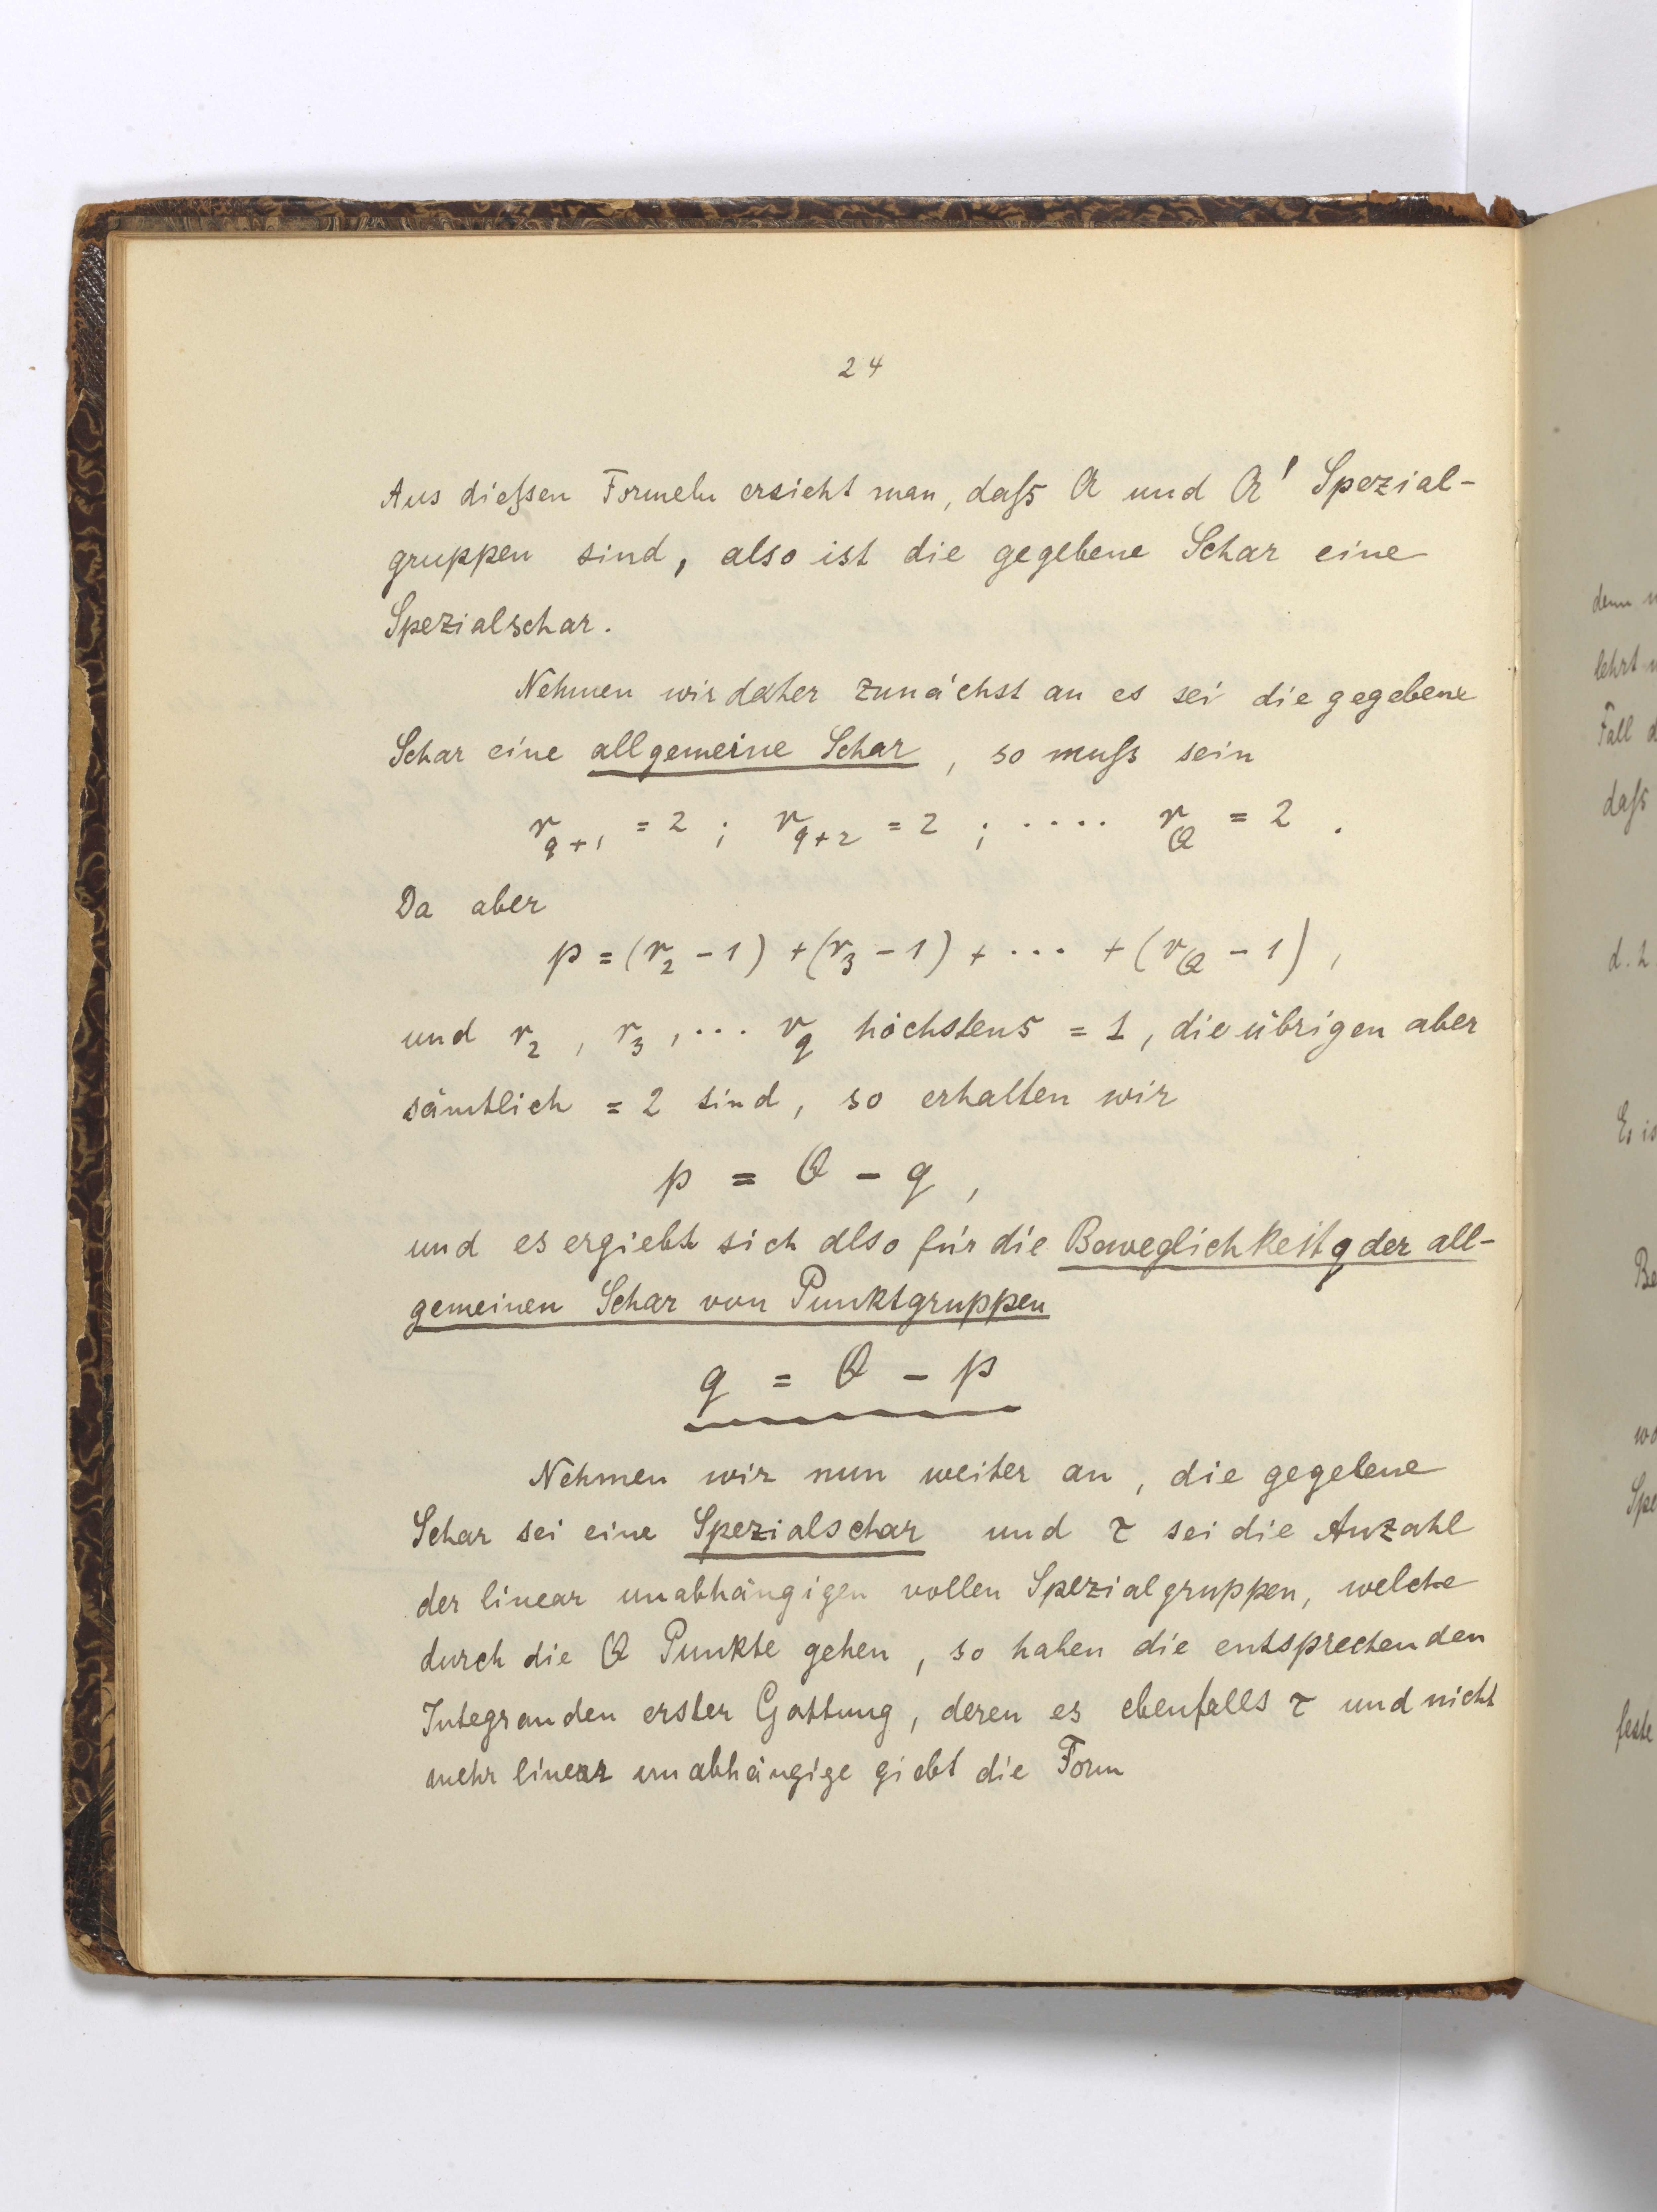 24
Aus dießen Formeln ersieht man, daſs A und A' Spezial-
gruppen sind, also ist die gegebene Schar eine
Spezialschar.
Nehmen wir daher zunächst an es sei die gegebene
Schar eine allgemeine Schar, so muſs sein
r_{q+1} = 2 ; r_{q+2} = 2 ; .... r_Q = 2 .
Da aber
p = (r_2 - 1) + (r_3 - 1) + ... + (r_Q - 1) ,
und r_2 , r_3 , ... r_q höchstens = 1, die übrigen aber
sämtlich = 2 sind, so erhalten wir
p = Q - q ,
und es ergiebt sich also für die Beweglichkeit q der all-
gemeinen Schar von Punktgruppen
q = Q - p
Nehmen wir nun weiter an, die gegebene
Schar sei eine Spezialschar und τ sei die Anzahl
der linear unabhängigen vollen Spezialgruppen, welche
durch die Q Punkte gehen, so haben die entsprechenden
Integranden erster Gattung, deren es ebenfalls τ und nicht
mehr linear unabhängige giebt die Form
denn
lehrt
Fall
daſs
d. h
Es
feste